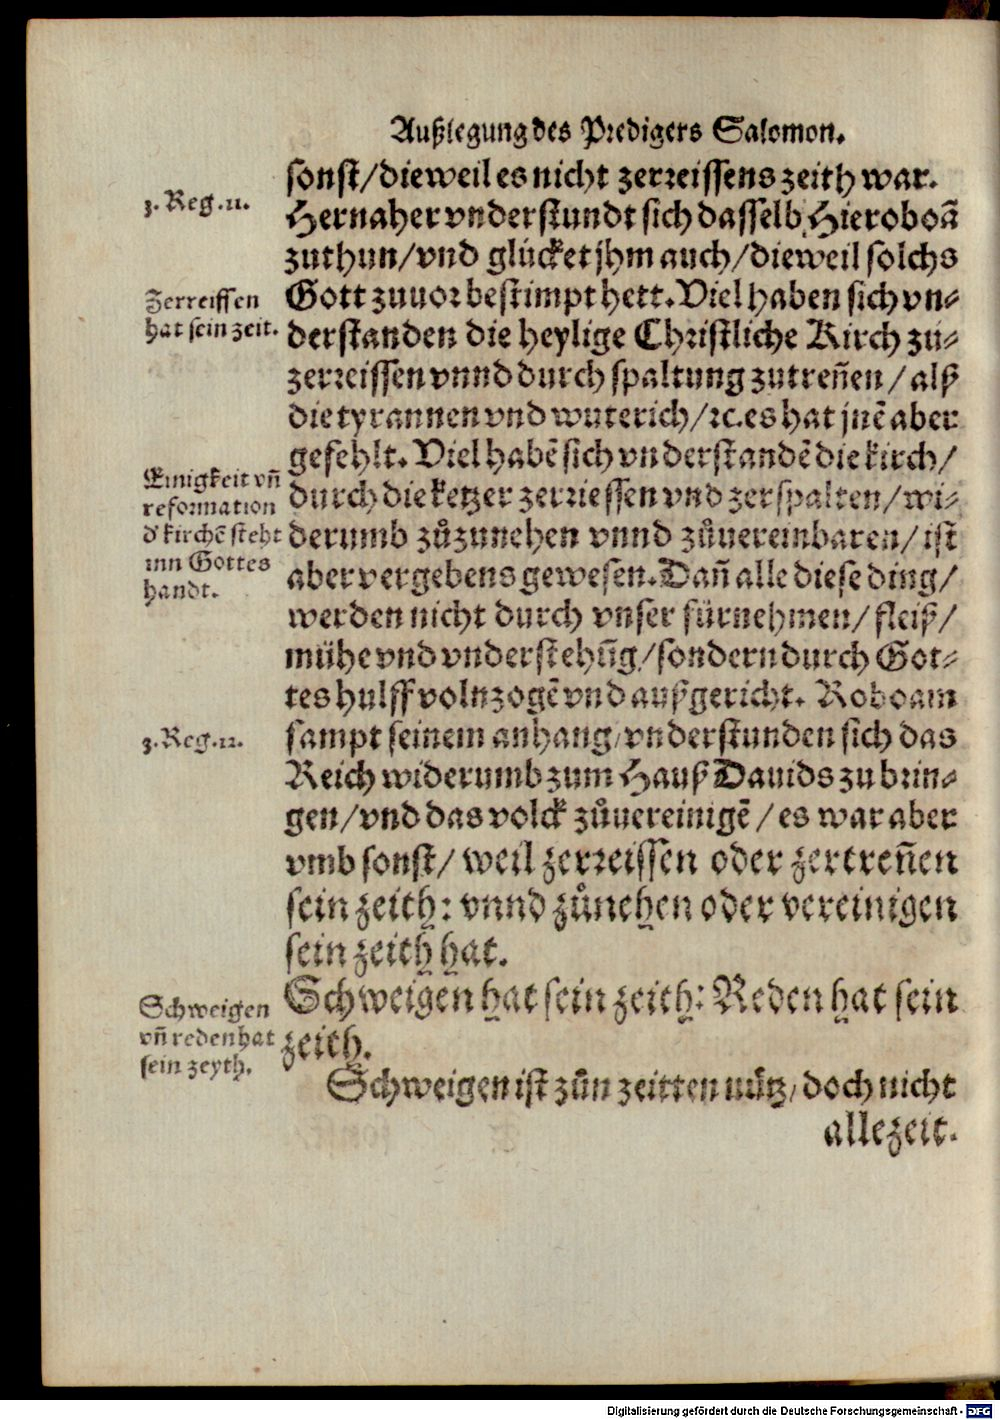 Außlegung des Predigers Salomon.
sonst/dieweil es nicht zerreissens zeith war.
3. Reg. 11.
Hernaher vnderstundt sich dasselb Hieroboã
zuthun/vnd glücket jhm auch/dieweil solchs
Zerreissen
hat sein zeit.
Gott zuuor bestimpt hett. Viel haben sich vn⸗
derstanden die heylige Christliche Kirch zu⸗
zerreissen vnnd durch spaltung zutreñen/alß
die tyrannen vnd wuterich/ꝛc. es hat jnẽ aber
gefehlt. Viel habẽ sich vnderstandẽ die kirch/
Einigkeit vñ
reformation
d' kirchẽ steht
inn Gottes
handt.
durch die ketzer zerriessen vnd zerspalten/wi⸗
derumb zůzunehen vnnd zůuereinbaren/ist
aber vergebens gewesen. Dañ alle diese ding/
werden nicht durch vnser fürnehmen/fleiß/
mühe vnd vnderstehũg/sondern durch Got⸗
tes hulff volnzogẽ vnd außgericht. Roboam
3. Reg. 12.
sampt seinem anhang/vnderstunden sich das
Reich widerumb zum Hauß Dauids zu brin⸗
gen/vnd das volck zůuereinigẽ/es war aber
vmb sonst/weil zerreissen oder zertreñen
sein zeith: vnnd zůnehen oder vereinigen
sein zeith hat.
Schweigen
vñ reden hat
sein zeyth.
Schweigen hat sein zeith: Reden hat sein
zeith.
Schweigen ist zůn zeitten nůtz/doch nicht
allezeit.
Digitalisierung gefördert durch die Deutsche Forschungsgemeinschaft - DFG